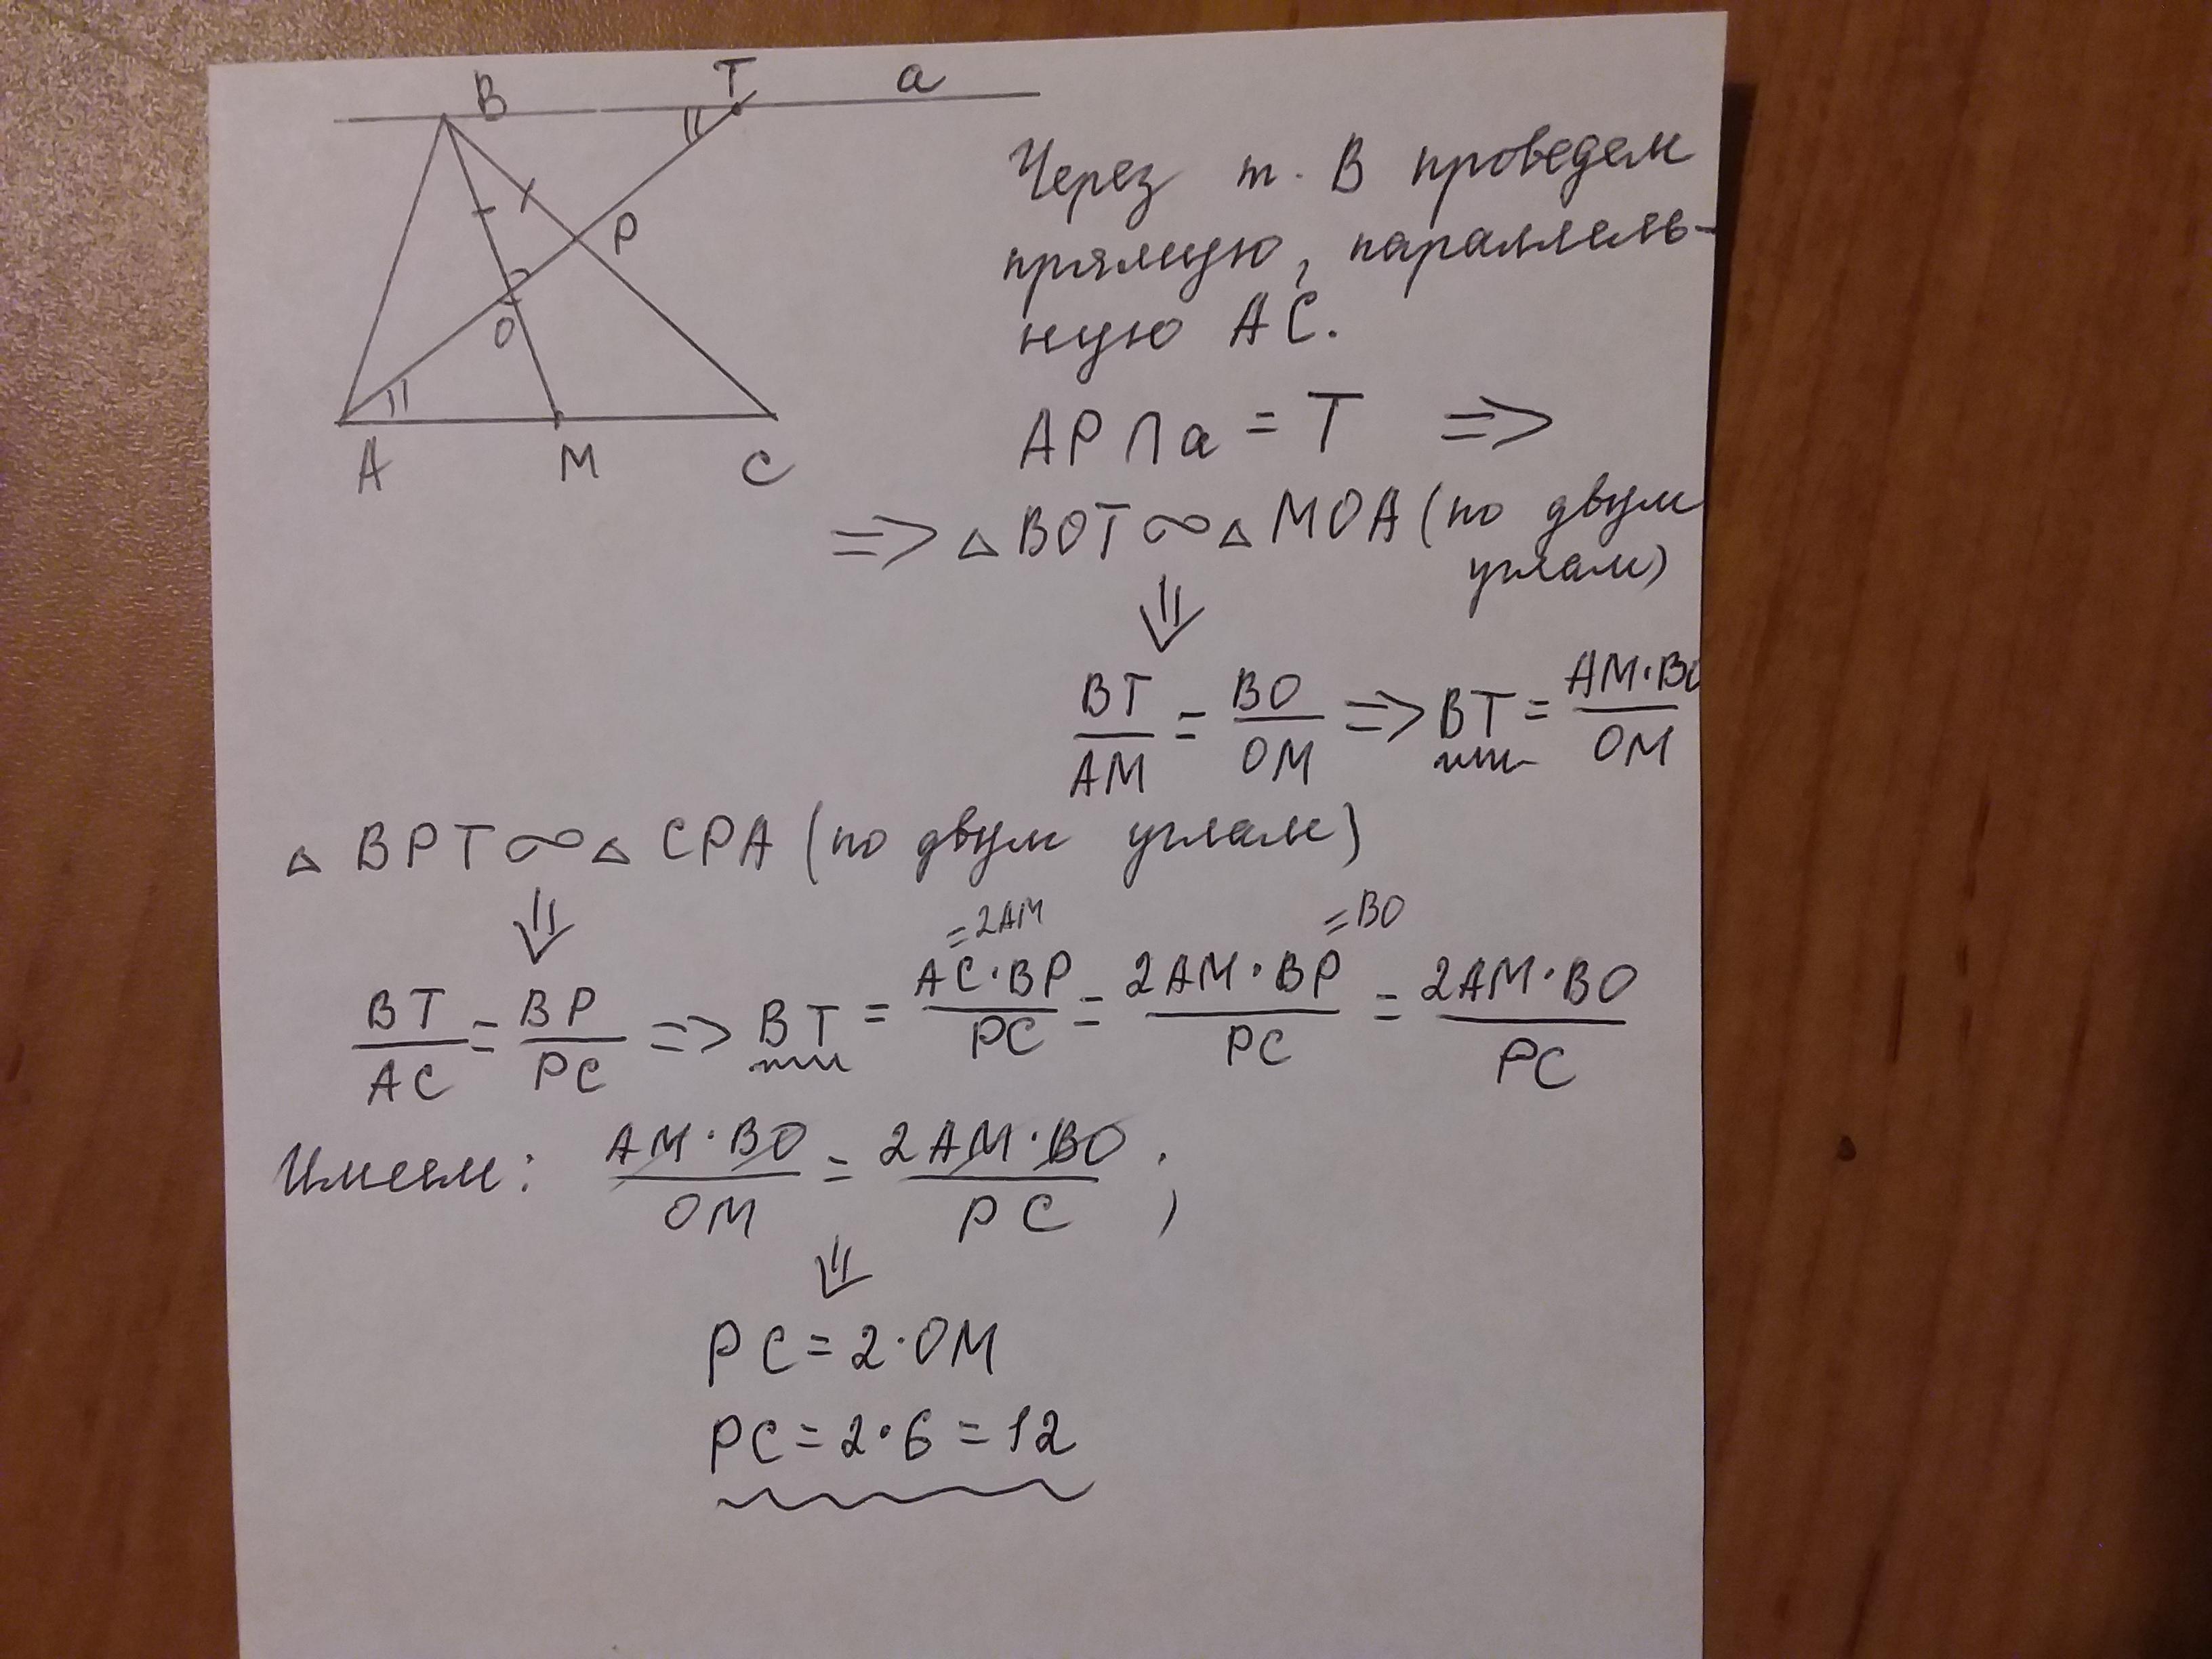 B T a
P
O
A M C
Через т. В проведем
прямую, параллель-
ную АС.
AP ∩ a = T =>
=> △ BOT ∞ △ MOA (по двум
углам)
⇓
BT/AM = BO/OM => BT = AM·BO/OM
△ BPT ∞ △ CPA (по двум углам)
⇓
=2AM =BO
BT/AC = BP/PC => BT = AC·BP/PC = 2AM·BP/PC = 2AM·BO/PC
Имеем: AM·BO/OM = 2AM·BO/PC ;
⇓
PC = 2·OM
PC = 2·6 = 12